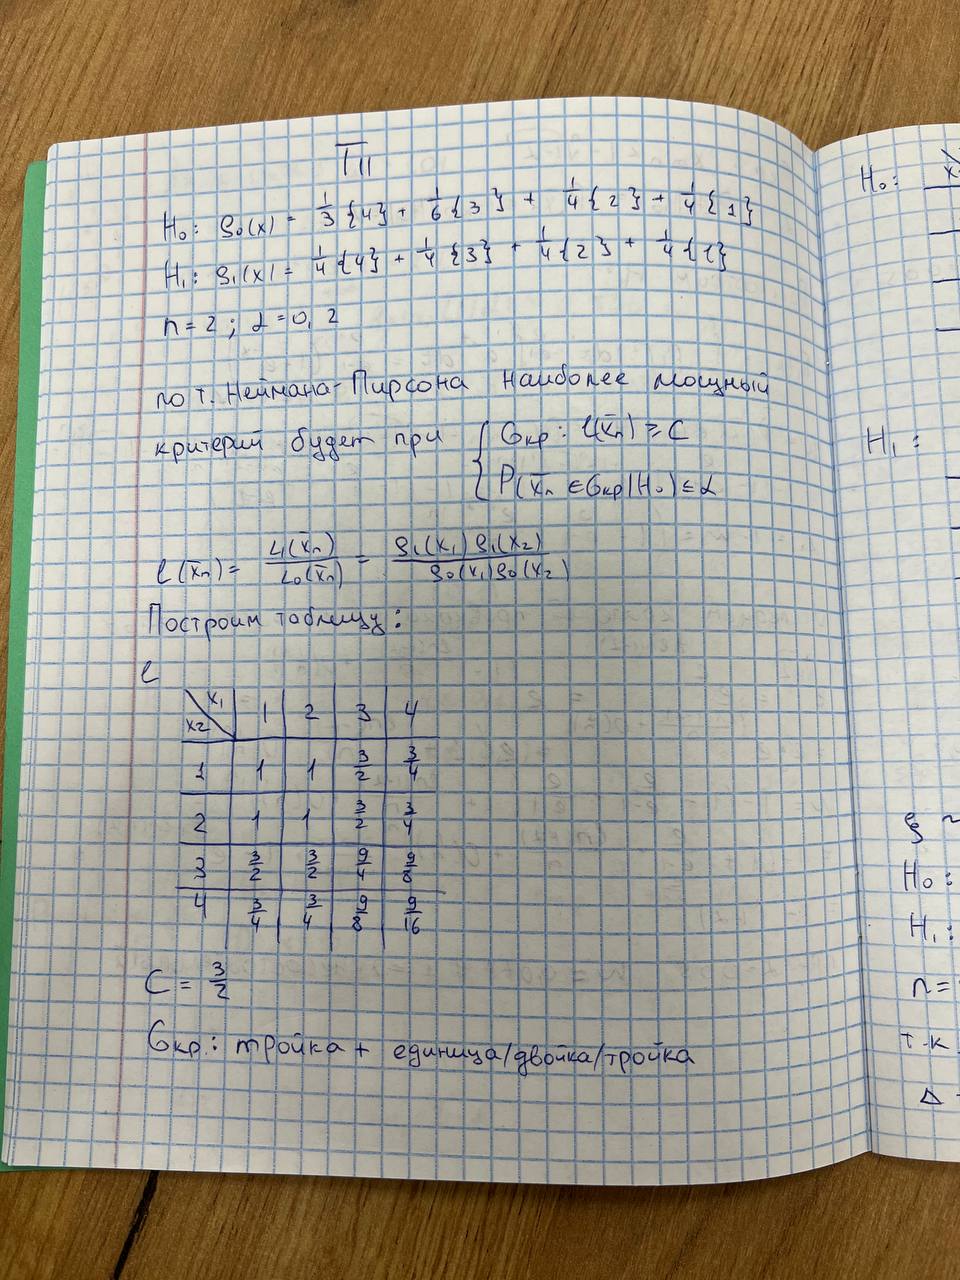 TП
H₀: ρ₀(x) = 1/3 {4} + 1/6 {3} + 1/4 {2} + 1/4 {1}
H₁: ρ₁(x) = 1/4 {4} + 1/4 {3} + 1/4 {2} + 1/4 {1}
n = 2 ; α = 0, 2
по т. Неймана-Пирсона наиболее мощный
критерий будет при { Gкр: l(x̄ₙ) ≥ C
P(x̄ₙ ∈ Gкр | H₀) ≤ α
l(x̄ₙ) = L₁(x̄ₙ)/L₀(x̄ₙ) = ρ₁(x₁)ρ₁(x₂)/ρ₀(x₁)ρ₀(x₂)
Построим таблицу:
l
x₂\x₁ 1 2 3 4
1 1 1 3/2 3/4
2 1 1 3/2 3/4
3 3/2 3/2 9/4 9/8
4 3/4 3/4 9/8 9/16
C = 3/2
Gкр.: тройка + единица/двойка/тройка
H₀:
x
H₁:
ξ ~
H₀:
H₁:
n =
т.к
Δ